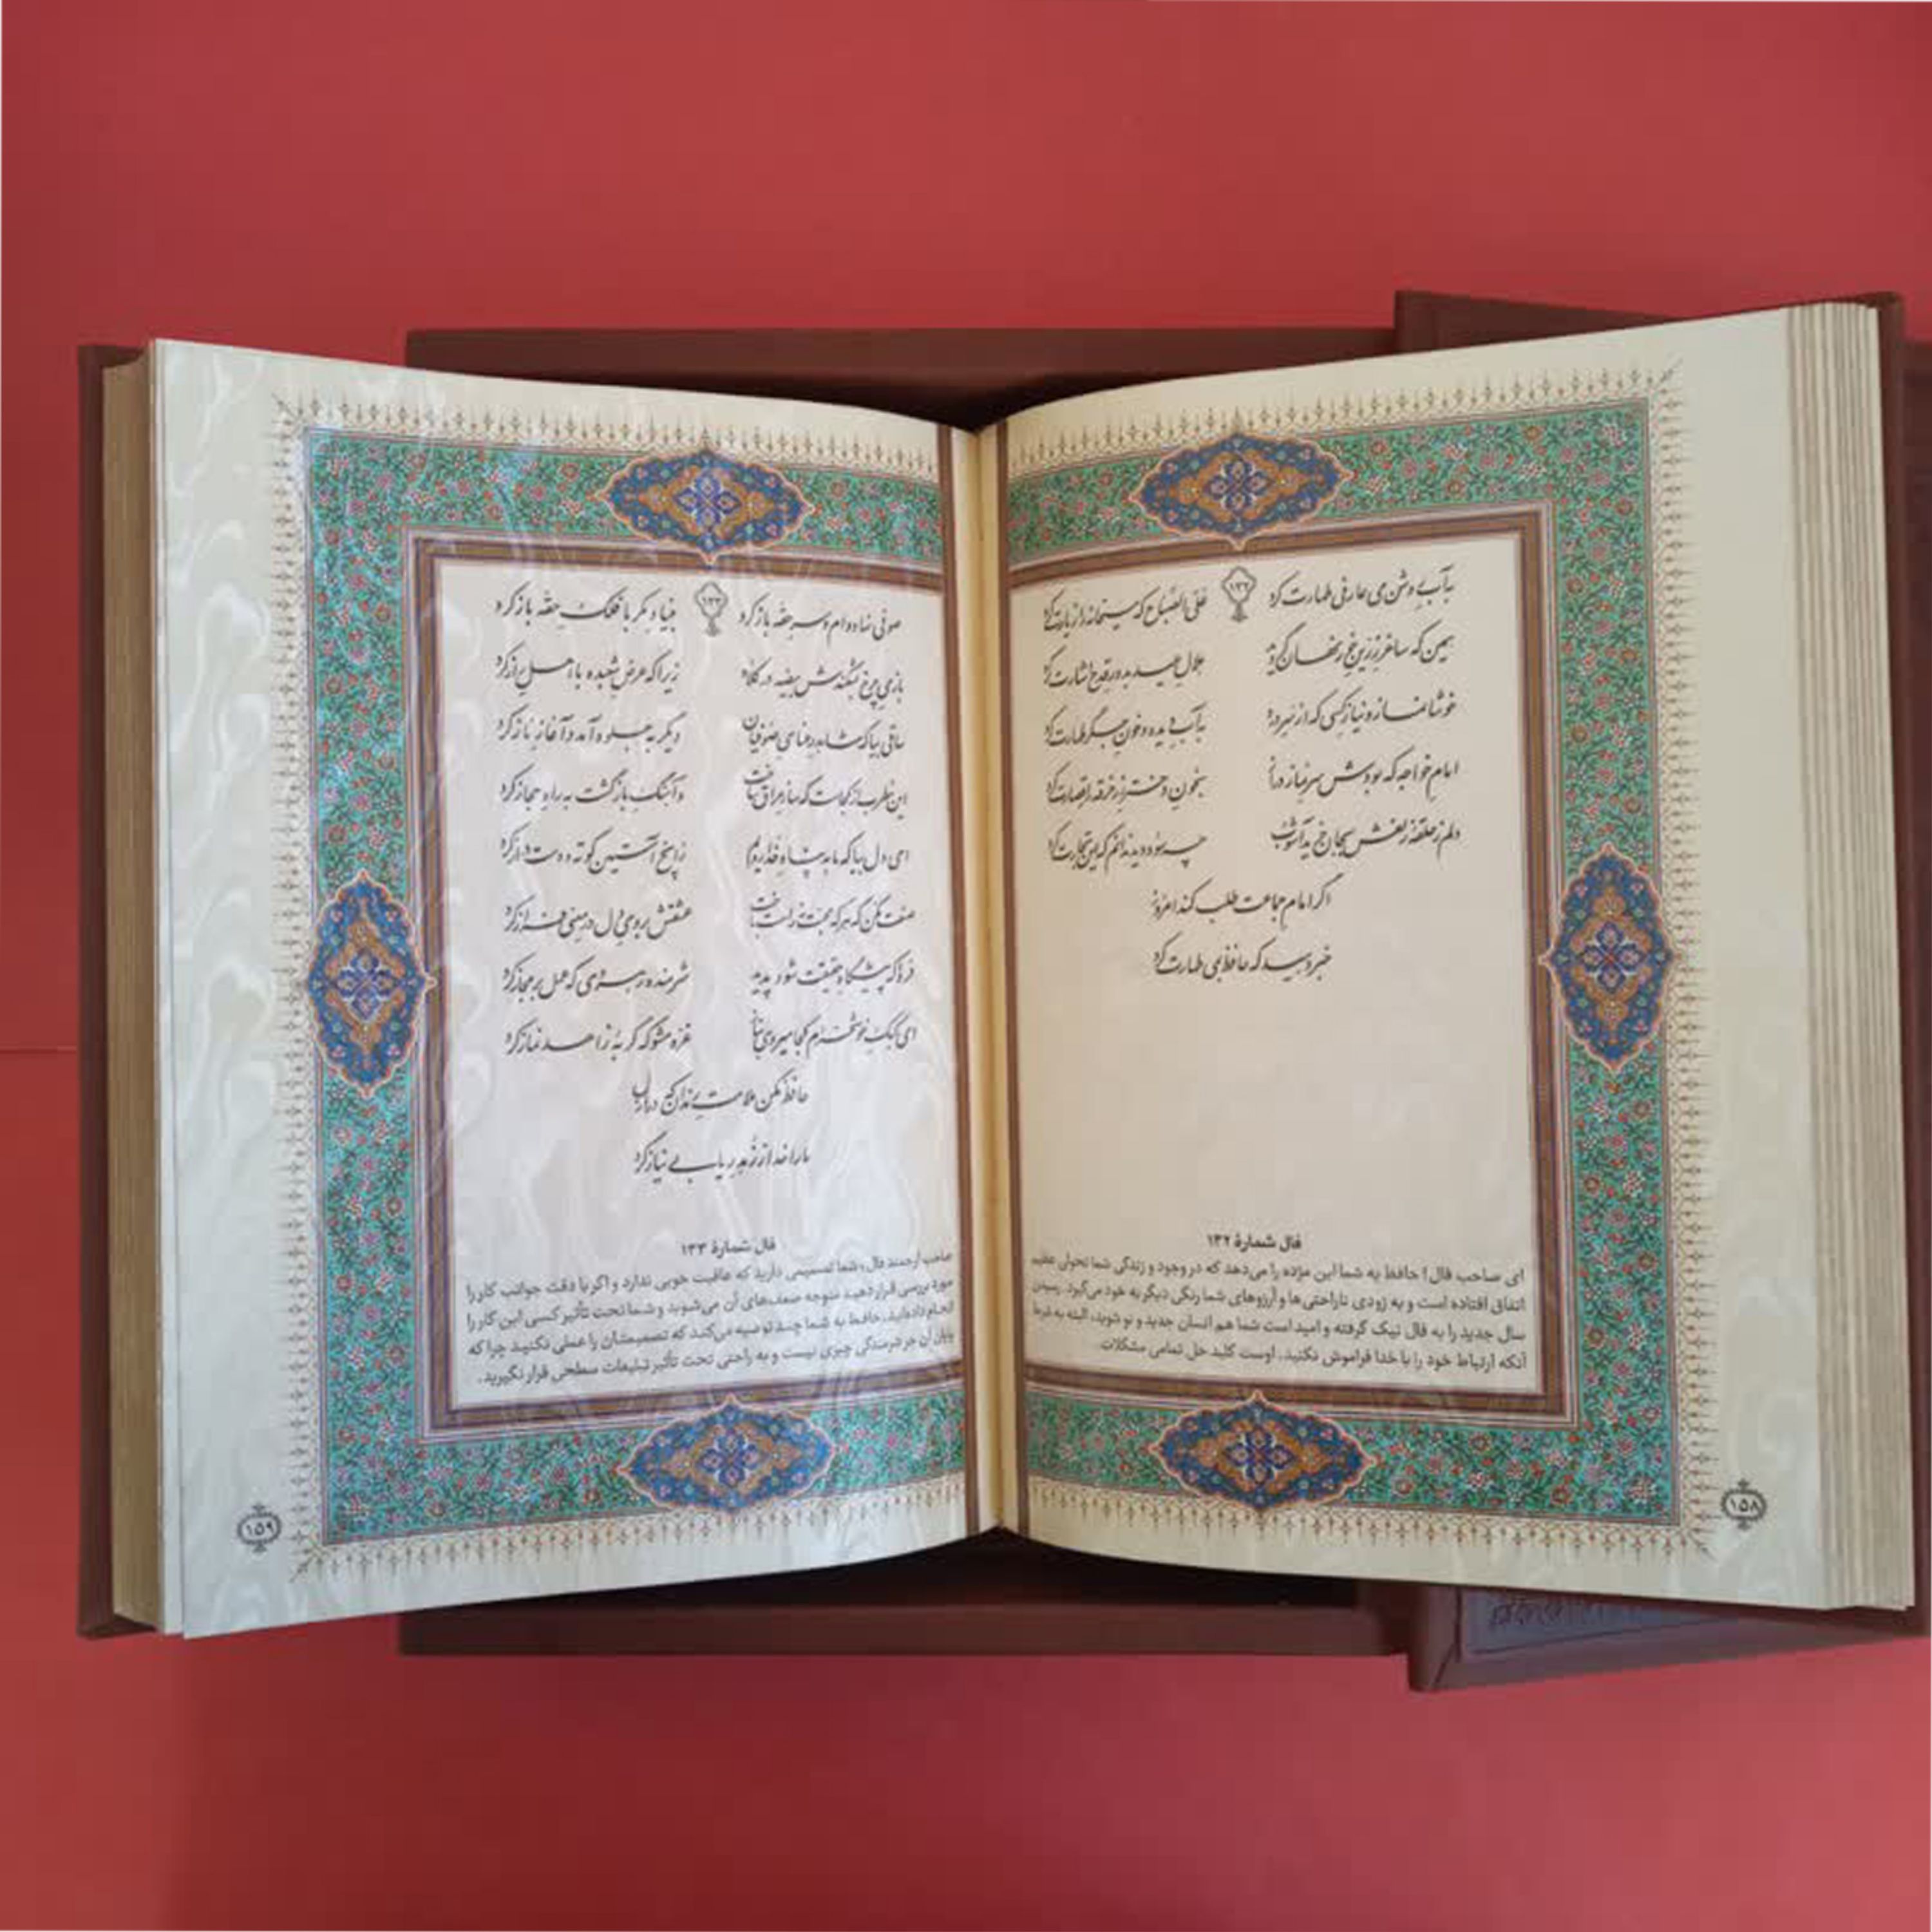 ۱۳۲
به آب روشن می عارفی طهارت کرد
علی الصباح که میخانه را زیارت کرد
همین که ساغر زرین خور نهان گردید
هلال عید به دور قدح اشارت کرد
خوشا نماز و نیاز کسی که از سر درد
به آب دیده و خون جگر طهارت کرد
امام خواجه که بودش سر نماز دراز
به خون دختر رز خرقه را قصارت کرد
دلم ز حلقه زلفش به جان خرید آشوب
چه سود دید ندانم که این تجارت کرد
اگر امام جماعت طلب کند امروز
خبر دهید که حافظ به می طهارت کرد
فال شمارهٔ ۱۳۲
ای صاحب فال! حافظ به شما این مژده را می‌دهد که در وجود و زندگی شما تحولی عظیم
اتفاق افتاده است و به زودی ناراحتی‌ها و آرزوهای شما رنگی دیگر به خود می‌گیرد. رسیدن
سال جدید را به فال نیک گرفته و امید است شما هم انسان جدید و نو شوید، البته به شرط
آنکه ارتباط خود را با خدا فراموش نکنید. اوست کلید حل تمامی مشکلات.
۱۵۸
۱۳۳
صوفی نهاد دام و سر حقه باز کرد
بنیاد مکر با فلک حقه باز کرد
بازی چرخ بشکندش بیضه در کلاه
زیرا که عرض شعبده با اهل راز کرد
ساقی بیا که شاهد رعنای صوفیان
دیگر به جلوه آمد و آغاز ناز کرد
این مطرب از کجاست که ساز عراق ساخت
و آهنگ بازگشت به راه حجاز کرد
ای دل بیا که ما به پناه خدا رویم
زانچ آستین کوته و دست دراز کرد
صنعت مکن که هر که محبت نه راست باخت
عشقش به روی دل در معنی فراز کرد
فردا که پیشگاه حقیقت شود پدید
شرمنده رهروی که عمل بر مجاز کرد
ای کبک خوشخرام کجا میروی بناز
غره مشو که گربهٔ زاهد نماز کرد
حافظ مکن ملامت رندان که در ازل
ما را خدا ز زهد ریا بی نیاز کرد
فال شمارهٔ ۱۳۳
صاحب ارجمند فال، شما تصمیمی دارید که عاقبت خوبی ندارد و اگر با دقت جوانب کار را
مورد بررسی قرار دهید متوجه ضعف‌های آن می‌شوید و شما تحت تأثیر کسی این کار را
انجام داده‌اید، حافظ به شما چند توصیه می‌کند که تصمیمتان را عملی نکنید چرا که
پایان آن جز شرمندگی چیزی نیست و به راحتی تحت تأثیر تبلیغات سطحی قرار نگیرید.
۱۵۹